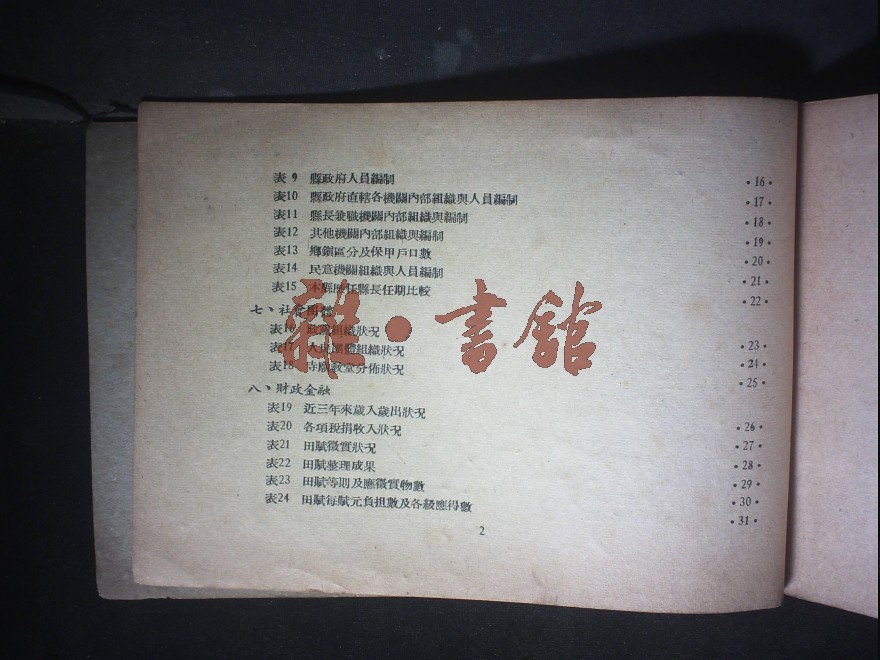 表 9 縣政府人員編制 •16•
表10 縣政府直轄各機關內部組織與人員編制 •17•
表11 縣長兼職機關內部組織與編制 •18•
表12 其他機關內部組織與編制 •19•
表13 鄉鎮區分及保甲戶口數 •20•
表14 民意機關組織與人員編制 •21•
表15 本縣歷任縣長任期比較 •22•
七、社會團體
表16 政黨組織狀況 •23•
表17 人民團體組織狀況 •24•
表18 寺廟教堂分佈狀況 •25•
八、財政金融
表19 近三年來歲入歲出狀況 •26•
表20 各項稅捐收入狀況 •27•
表21 田賦徵實狀況 •28•
表22 田賦整理成果 •29•
表23 田賦等則及應徵實物數 •30•
表24 田賦每賦元負担數及各級應得數 •31•
2
雜•書館